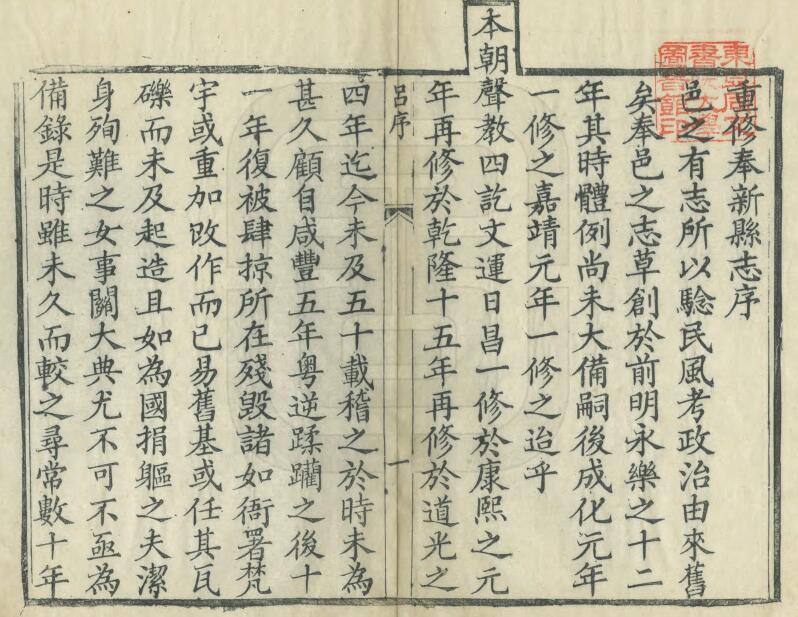 重修奉新縣志序
邑之有志所以騐民風考政治由來舊
矣奉邑之志草創於前明永樂之十二
年其時體例尚未大備嗣後成化元年
一修之嘉靖元年一修之迨乎
本朝聲教四訖文運日昌一修於康熙之元
年再修於乾隆十五年再修於道光之
呂序
一
四年迄今未及五十載稽之於時未為
甚久顧自咸豐五年粤逆蹂躪之後十
一年復被肆掠所在殘毀諸如衙署梵
宇或重加改作而已易舊基或任其瓦
礫而未及起造且如為國捐軀之夫潔
身殉難之女事關大典尤不可不亟為
備錄是時雖未久而較之尋常數十年